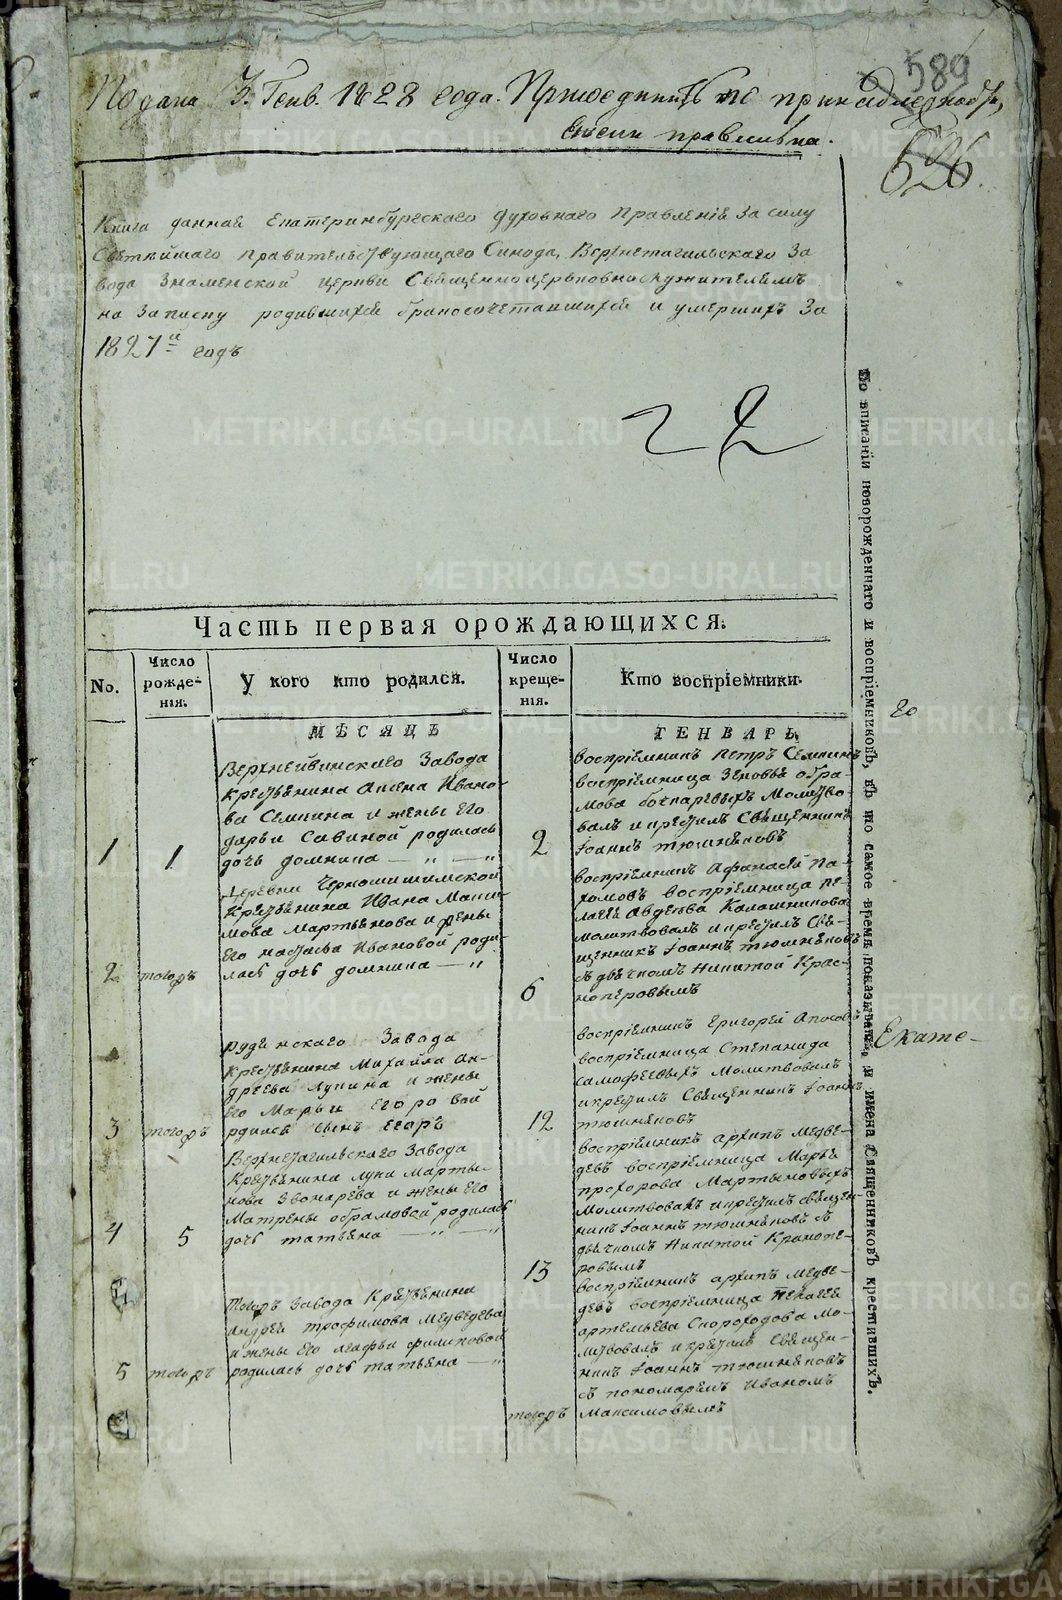 589
Подана 3. Генв. 1828 года. Приобщить къ принадлежнос.,
526.
Книга данная Екатеринбургскаго Духовнаго Правленіѣ За силу
Святейшаго правительствующаго Синода, Верхнетагильскаго За
вода Знаменской церкви Священноцерьковнослужителямъ
на Записку родившихся бракосочетавшихся и умершихъ За
1827й годъ
22
Часть первая орождающихся.
No.
Число рожде-нія.
У кого кто родился.
Число креще-нія.
Кто воспріемники.
МѢСЯЦЪ
ГЕНВАРЬ
Верхнейвинскаго Завода
Крестьянина Ивано-
ва Семнина и жены Его
дарьи Савиной родилась
1
1
дочь домнина — „ — „
2
воспріемникъ Петръ Семнинъ
воспріемница Зеновья Абра-
мова бочкаревыхъ Молитво-
валъ и крестилъ Священникъ
Іоаннъ тюшняковъ
Деревни
Крестьянина Ивана Макси-
мова Мартьянова и жены
Его настасьи Ивановой роди-
2
тогожъ
лась дочь домнина — „
6
воспріемникъ Афанасій Па-
хомовъ воспріемница пе-
лагея Авдеева Калашникова
молитвовалъ и крестилъ Свя-
щенникъ Іоаннъ тюшняковъ
съ дьячкомъ Никитой Крас-
ноперовымъ
рудянскаго Завода
Крестьянина Михайла Ан-
дреева Лупина и жены
Его Марьи Егоровой
3
тогожъ
родился сынъ Егоръ
12
воспріемникъ Григорей
воспріемница Степанида
Молитвовалъ
и крестилъ Священникъ Іоаннъ
тюшняковъ
Верхнетагильскаго Завода
Крестьянина луки Марты-
нова Звонарева и жены Его
Матрены Абрамовой родилась
4
5
дочь татьяна — „ — „
13
воспріемникъ архипъ Медве-
девъ воспріемница Марья
прохорова Мартыновыхъ
Молитвовалъ и крестилъ священ-
никъ Іоаннъ тюшняковъ съ
дьячкомъ Никитой Краснопе-
ровымъ
тогожъ Завода Крестьянина
Андрея трофимова Медведева
и жены Его агафьи филиповой
5
тогожъ
родилась дочь татьяна — „
тогожъ
воспріемникъ архипъ Медве-
девъ воспріемница Пелагея
артемьева Скороходова мо-
литвовалъ и крестилъ Священ-
никъ Іоаннъ тюшняковъ
съ пономаремъ Иваномъ
Максимовымъ
По вписаніи новорожденнаго и воспріемниковъ, въ то самое время показывать и имена Священниковъ крестившихъ.
го
Екате-
METRIKI.GASO-URAL.RU